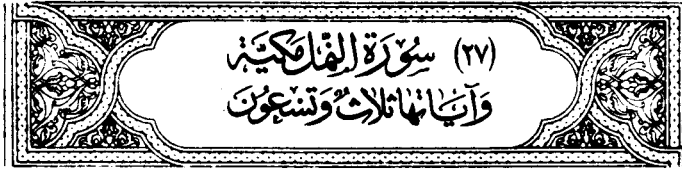 (٢٧) سُوْرَةِ النَّمْلِ مَكِيَّة
وَآيَاتُهَا ثَلَاثٌ وَتِسْعُونَ